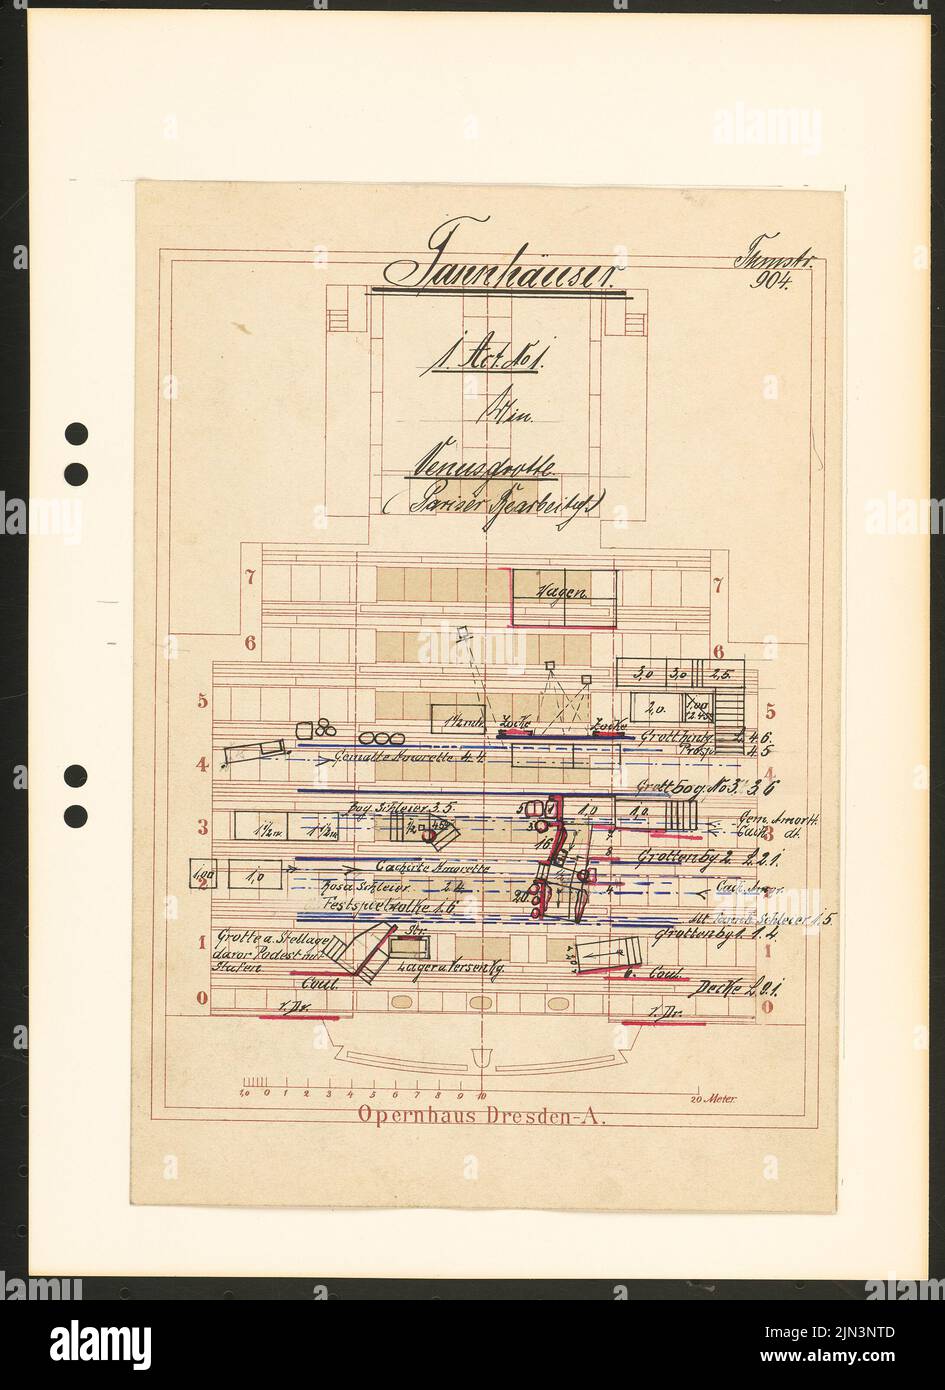 Tannhäuser.
904.
1. Act. No 1.
Min.
Venusgrotte
(Pariser Bearbeitg.)
7
Wagen
7
6
6
3,0 3,0 2,5.
5
2,0. 1,00
5
Grotthintr. L. 4.6.
Prosp. 4.5
4
Gemalte Amorette 4.4.
4
Grottbog. No 3. 3.6
Bog. Schleier 3.5
5
1,0 1,0.
3
3
1½ m. 1½ m
16.
Grottenbg. 2. L. 2.1.
1,00
2
1,0
Cachirte Amorette
Rosa Schleier 2.4
20.
4
Cach. Amor.
Festspielwolke 1.6
Schleier 1.5
Grottenbg 1. 1.4.
1
Grotte a. Stellage
davor Podest mit
Stufen.
Str.
1
Lager u. Versenkg.
Coul.
6. Coul.
Decke L. 0.1.
0
1. Dr.
1. Dr.
0
1,0 0 1 2 3 4 5 6 7 8 9 10 20 Meter.
Opernhaus Dresden-A.
alamy
Image ID: 2JN3NTD
www.alamy.com